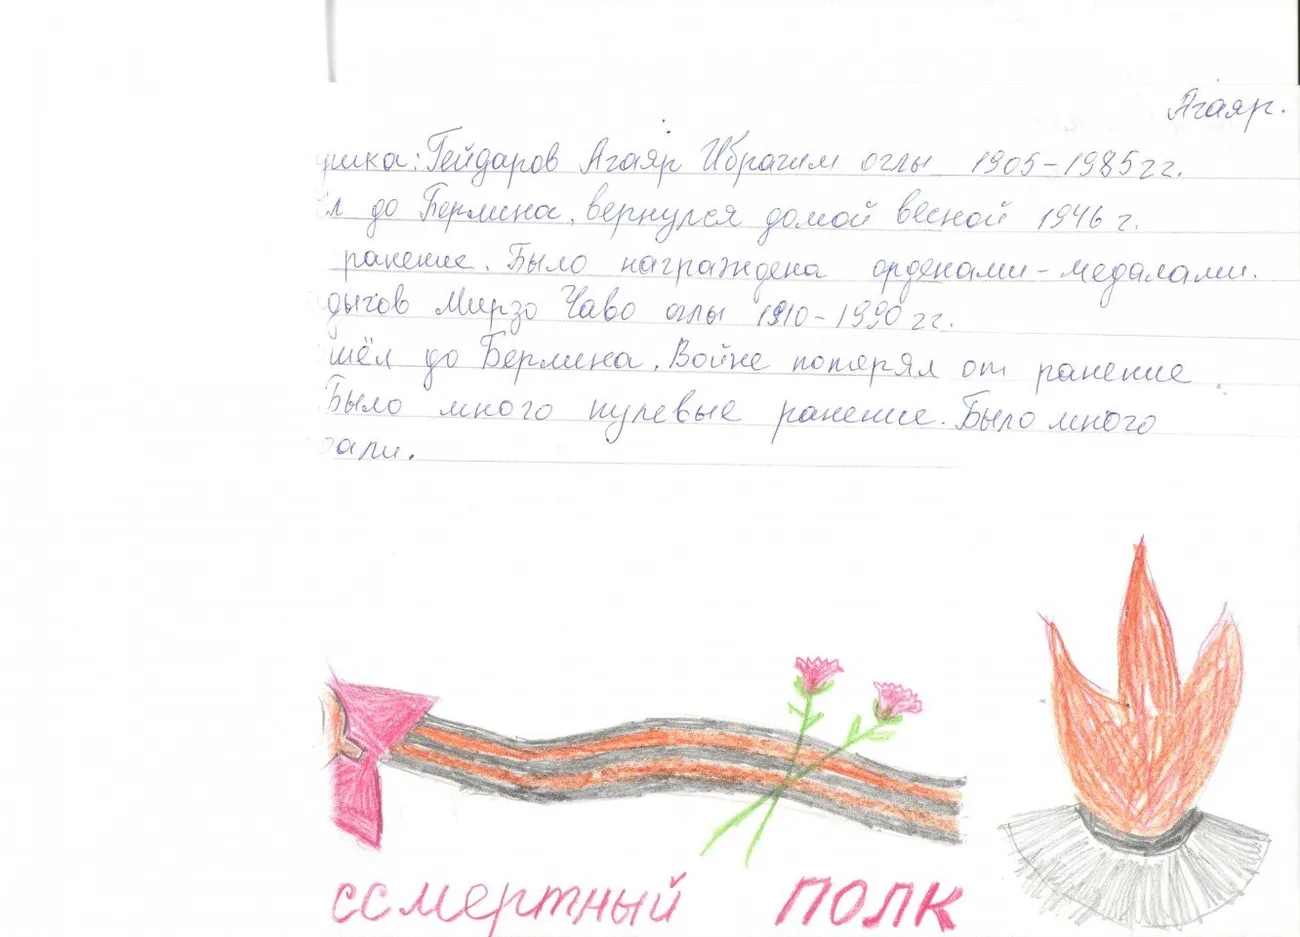 Агаяр.
ушка: Гейдаров Агаяр Ибрагим оглы 1905-1985 гг.
ёл до Берлина, вернулся домой весной 1946 г.
ранение. Было награждена орденами-медалами.
дыгов Мирзо Чаво оглы 1910-1990 гг.
шёл до Берлина. Войне потерял от ранение
Было много пулевые ранение. Было много
дали.
ссмертный полк